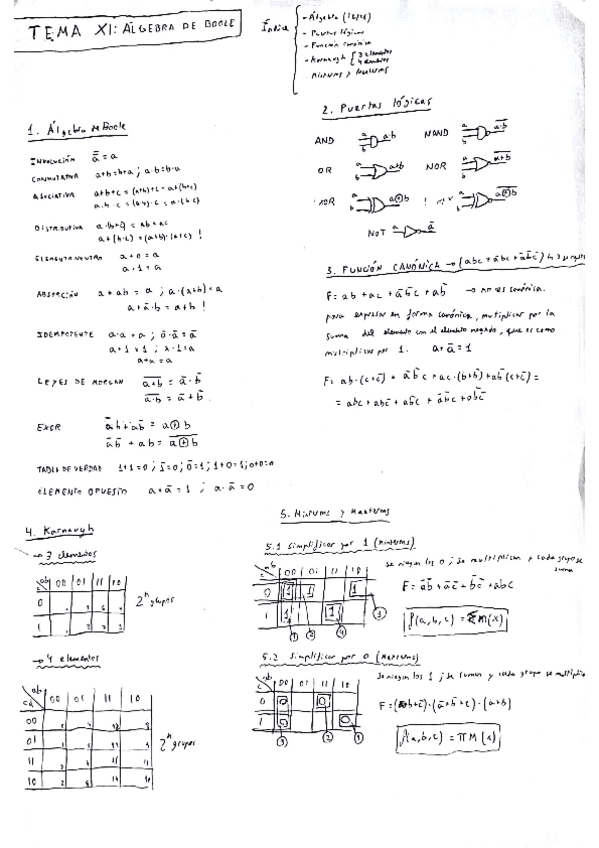 TEMA XI: ÁLGEBRA DE BOOLE
Índice
- Álgebra
- Puertas lógicas
- Función canónica
- Karnaugh
3 elementos
4 elementos
1. Álgebra de Boole
INVOLUCIÓN a̿ = a
CONMUTATIVA a+b = b+a ; a·b = b·a
ASOCIATIVA a+b+c = (a+b)+c = a+(b+c)
a·b·c = (a·b)·c = a·(b·c)
DISTRIBUTIVA
a+(b·c) = (a+b)·(a+c) !
ELEMENTO NEUTRO a+0 = a
a·1 = a
ABSORCIÓN a+ab = a ; a·(a+b) = a
a+ā·b = a+b !
IDEMPOTENTE a·a = a ; ā·ā = ā
a+a = a
LEYES DE MORGAN (a+b)̅ = ā·b̅
(a·b)̅ = ā+b̅
EXOR āb+ab̅ = a⊕b
āb̅ + ab = (a⊕b)̅
TABLA DE VERDAD
ELEMENTO OPUESTO a+ā = 1 ; a·ā = 0
2. Puertas lógicas
AND a b a·b NAND a b (a·b)̅
OR a b a+b NOR a b (a+b)̅
a b a⊕b a b (a⊕b)̅
NOT a ā
3. FUNCIÓN CANÓNICA
F = ab + ac + āb̅c + ab̅ → no es canónica.
para expresar en forma canónica, multiplicar por la
suma del elemento con el elemento negado, que es como
multiplicar por 1. a+ā = 1
F = ab·(c+c̅) + āb̅c + ac·(b+b̅) + ab̅(c+c̅) =
= abc + abc̅ + ab̅c + āb̅c + ab̅c̅
4. Karnaugh
→ 3 elementos
ab 00 01 11 10
c
0
1
2ⁿ grupos
→ 4 elementos
ab 00 01 11 10
cd
00
01
11
10
2ⁿ grupos
5. Minterms y Maxterms
5.1 Simplificar por 1 (Minterms)
ab 00 01 11 10
c
0 1 1 1
1 1 1
Se niegan los 0 ; se multiplican y cada grupo se
suma
F = āb̅ + āc̅ + b̅c̅ + abc
5.2 Simplificar por 0 (Maxterms)
ab 00 01 11 10
c
0 0 0
1 0 0
Se niegan los 1 ; se suman y cada grupo se multiplica